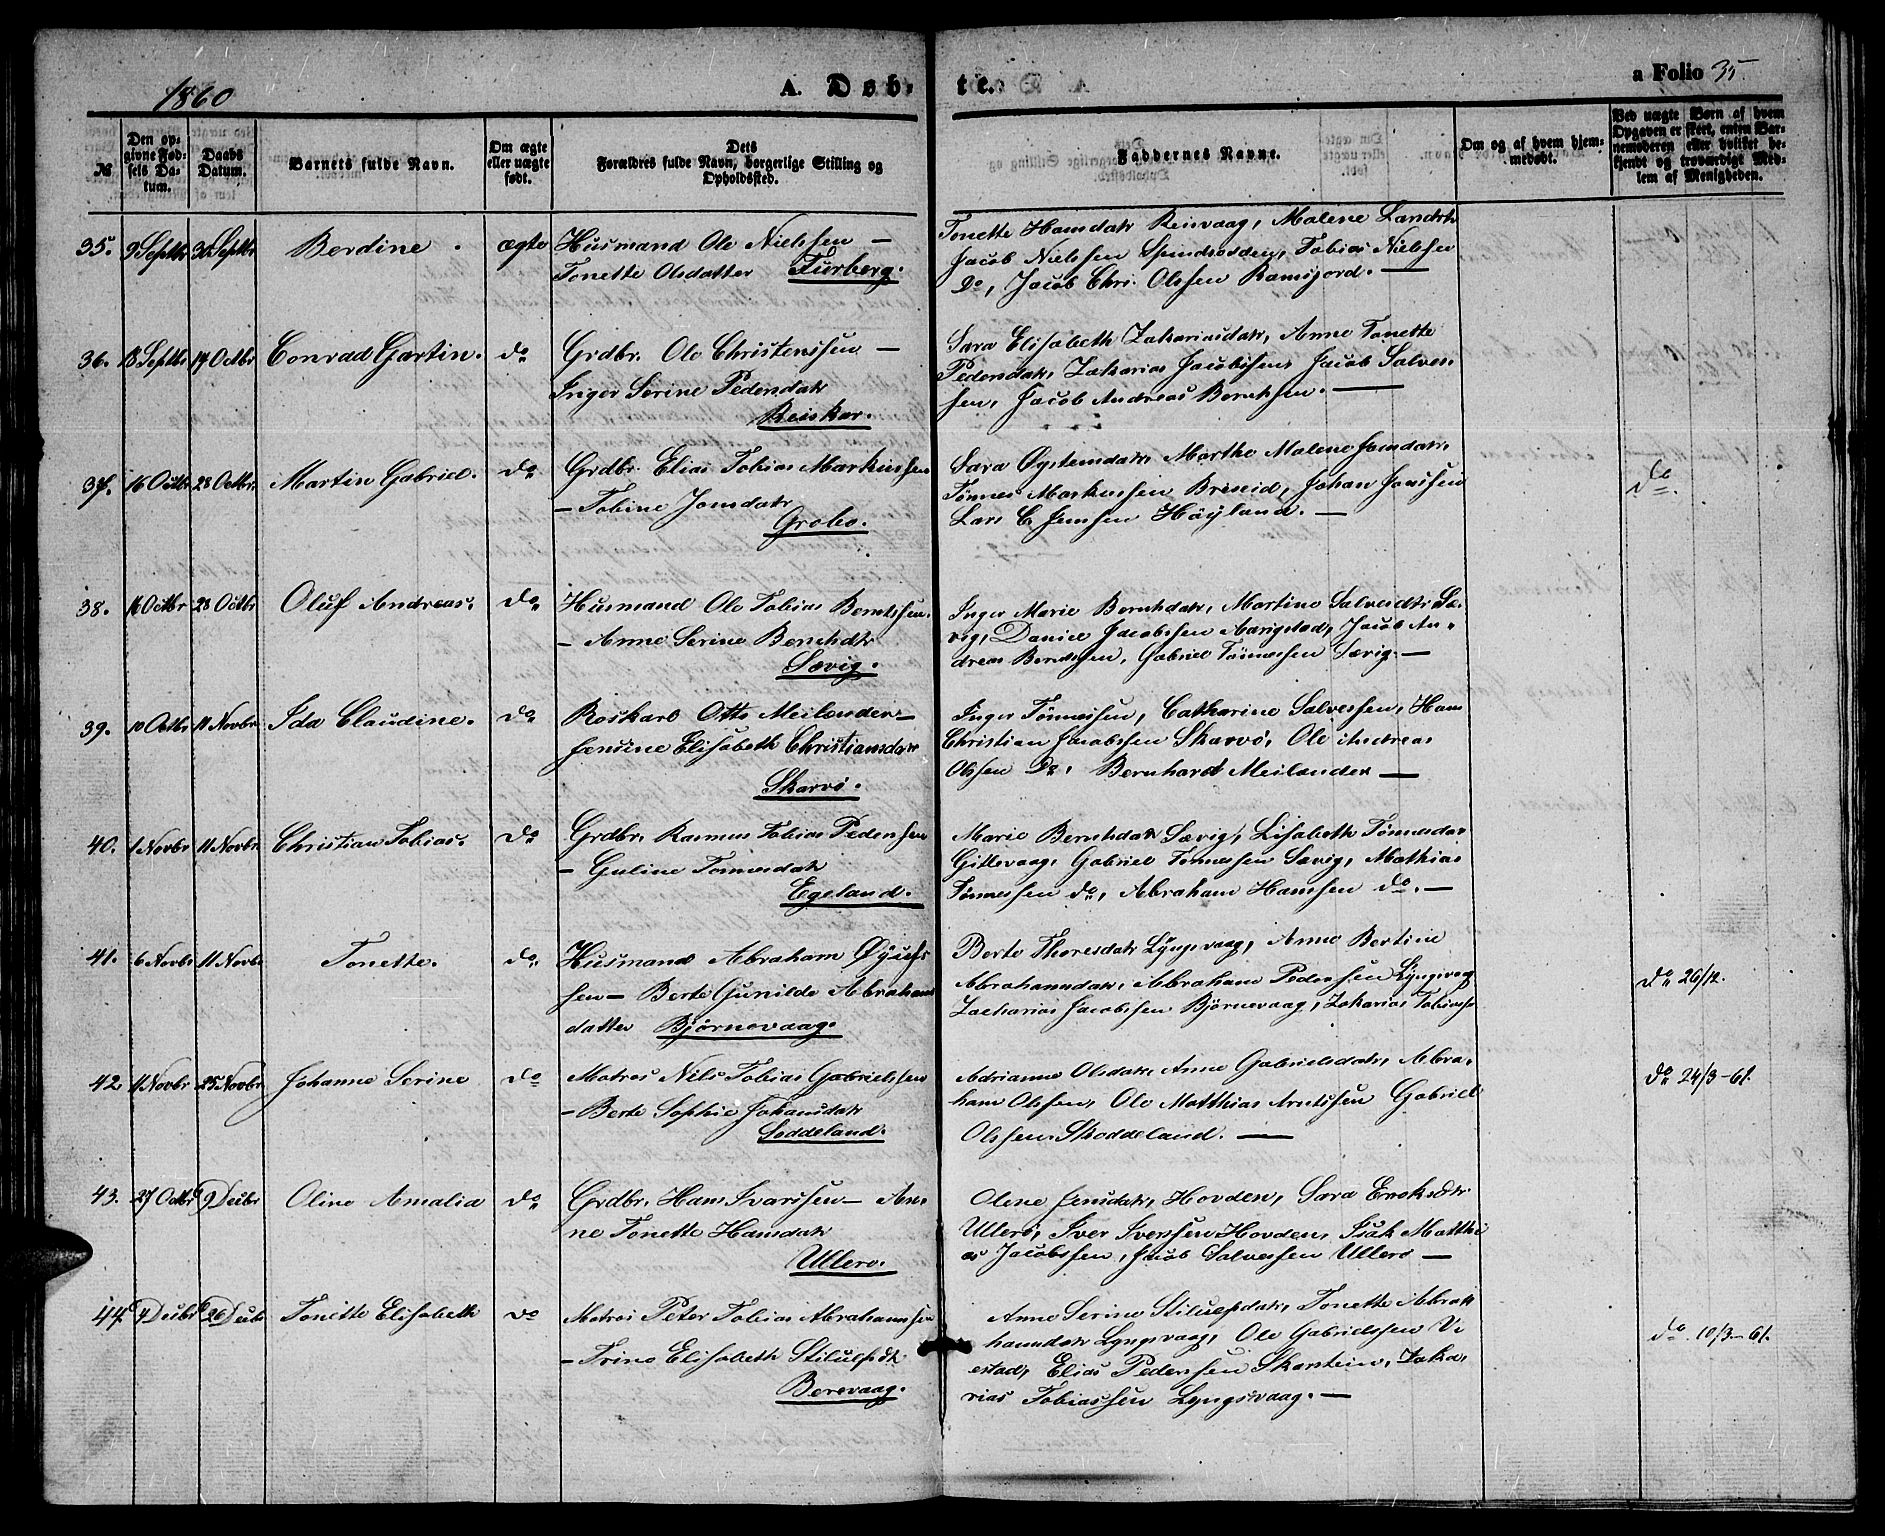 1860
A. Døbte.
a Folio 35.
№
Den opgivne Fødsels Datum.
Daabs Datum.
Barnets fulde Navn.
Om ægte eller uægte født.
Dets Forældres fulde Navn, borgerlige Stilling og Opholdssted.
Faddernes Navne.
Om og af hvem hjemmedøbt.
Ved uægte Børn af hvem Opgaven er skeet, enten Barnemoderen eller hvilket bekjendt og troværdigt Medlem af Menigheden.
35. 9 Septbr 30 Septbr Berdine . ægte Husmand Ole Nielssen —
Tonette Olsdatter Furberg.
Tonette Hansdatr Reisvaag, Malene Larsdtr
Jacob Nielssen Spindsodden, Tobias Nielssen
Do, Jacob Chri. Olssen Ramsjord. —
36. 18 Septbr 14 Octbr Conrad Gartin. do Grdbr. Ole Christenssen —
Inger Serine Pedersdatr
Reiskar.
Sara Elisabeth Zakariasdatr, Anne Tonette
Pedersdatr, Zakarias Jacobssen, Jacob Salves-
sen, Jacob Andreas Berntsen. —
37. 16 Octbr 28 Octbr. Martin Gabriel. do Grdbr. Elias Tobias Markussen
— Tobine Jonsdatr
Grobo.
Sara Øystensdatr, Marthe Malene Jonsdatr,
Tønnes Markussen Briseid, Johan Janssen
Lars C. Jenssen Høyland. —
do.
38. 16 Octbr 28 Octbr Oluf Andreas. do Husmand Ole Tobias Berntssen.
— Anne Serine Berntsdtr
Sævig.
Inger Marie Berntsdatr, Martine Salvesdtr Sæ-
vig, Daniel Jacobssen Aarigstad, Jacob An-
dreas Berntssen, Gabriel Tønnessen Sævig. —
39. 10 Octbr 11 Novbr. Ida Claudine. do Roskarl Otto Meilænder —
Jensine Elisabeth Christiansdatr
Skarvø.
Inger Tønnessen, Catharine Salvessen, Hans
Christian Jacobssen Skarvø, Ole Andreas
Olssen Do, Bernhardt Meilænder —
40. 1 Novbr 11 Novbr. Christian Tobias. do Grdbr. Rasmus Tobias Pederssen
— Guline Tonnesdatr
Egeland.
Marie Berntsdatr Sævig, Lisabeth Tønnesdatr
Gitlevaag, Gabriel Tønnessen Sævig, Mathias
Tønnessen do, Abraham Hanssen do. —
41. 6 Novbr 11 Novbr Tonette. do Husmand Abraham
sen — Berte Gunilde Abrahams
datter Bjørnevaag.
Berte Thoresdatr Lyngsvaag, Anne Bertine
Abrahamsdatr, Abraham Pederssen Lyngsvaag
Zacharias Jacobssen Bjørnevaag, Zakarias Tobiassen
do 26/12.
42. 11 Novbr 25 Novbr. Johanne Serine do Matros Nils Tobias Gabrielssen
— Berte Sophie Johansdatr
Soddeland.
Adrianne Olsdatr, Anne Gabrielsdatr, Abra-
ham Olssen, Ole Matthias Arntssen Gabriel
Olssen, Skoddeland. —
do 24/3 - 61.
43. 27 Octbr 9 Decbr Oline Amalia do Grdbr. Hans Ivarssen — An-
ne Tonette Hansdatr
Ullerø.
Olene Jensdatr, Hovden, Sara Eriksdtr
Ullerø, Iver Iverssen Hovden, Isak Matthi
as Jacobssen, Jacob Salvessen Ullerø —
44. 4 Decbr 26 Decbr Tonette Elisabeth do Matros Peter Tobias Abrahamssen
— Trine Elisabeth
Berevaag.
Anne Serine Tonette Abra
hamsdatr Lyngsvaag, Ole Gabrielssen Vi
estad, Elias Pederssen Skarstein, Zaka-
rias Tobiassen Lyngsvaag. —
do. 10/3 - 61.